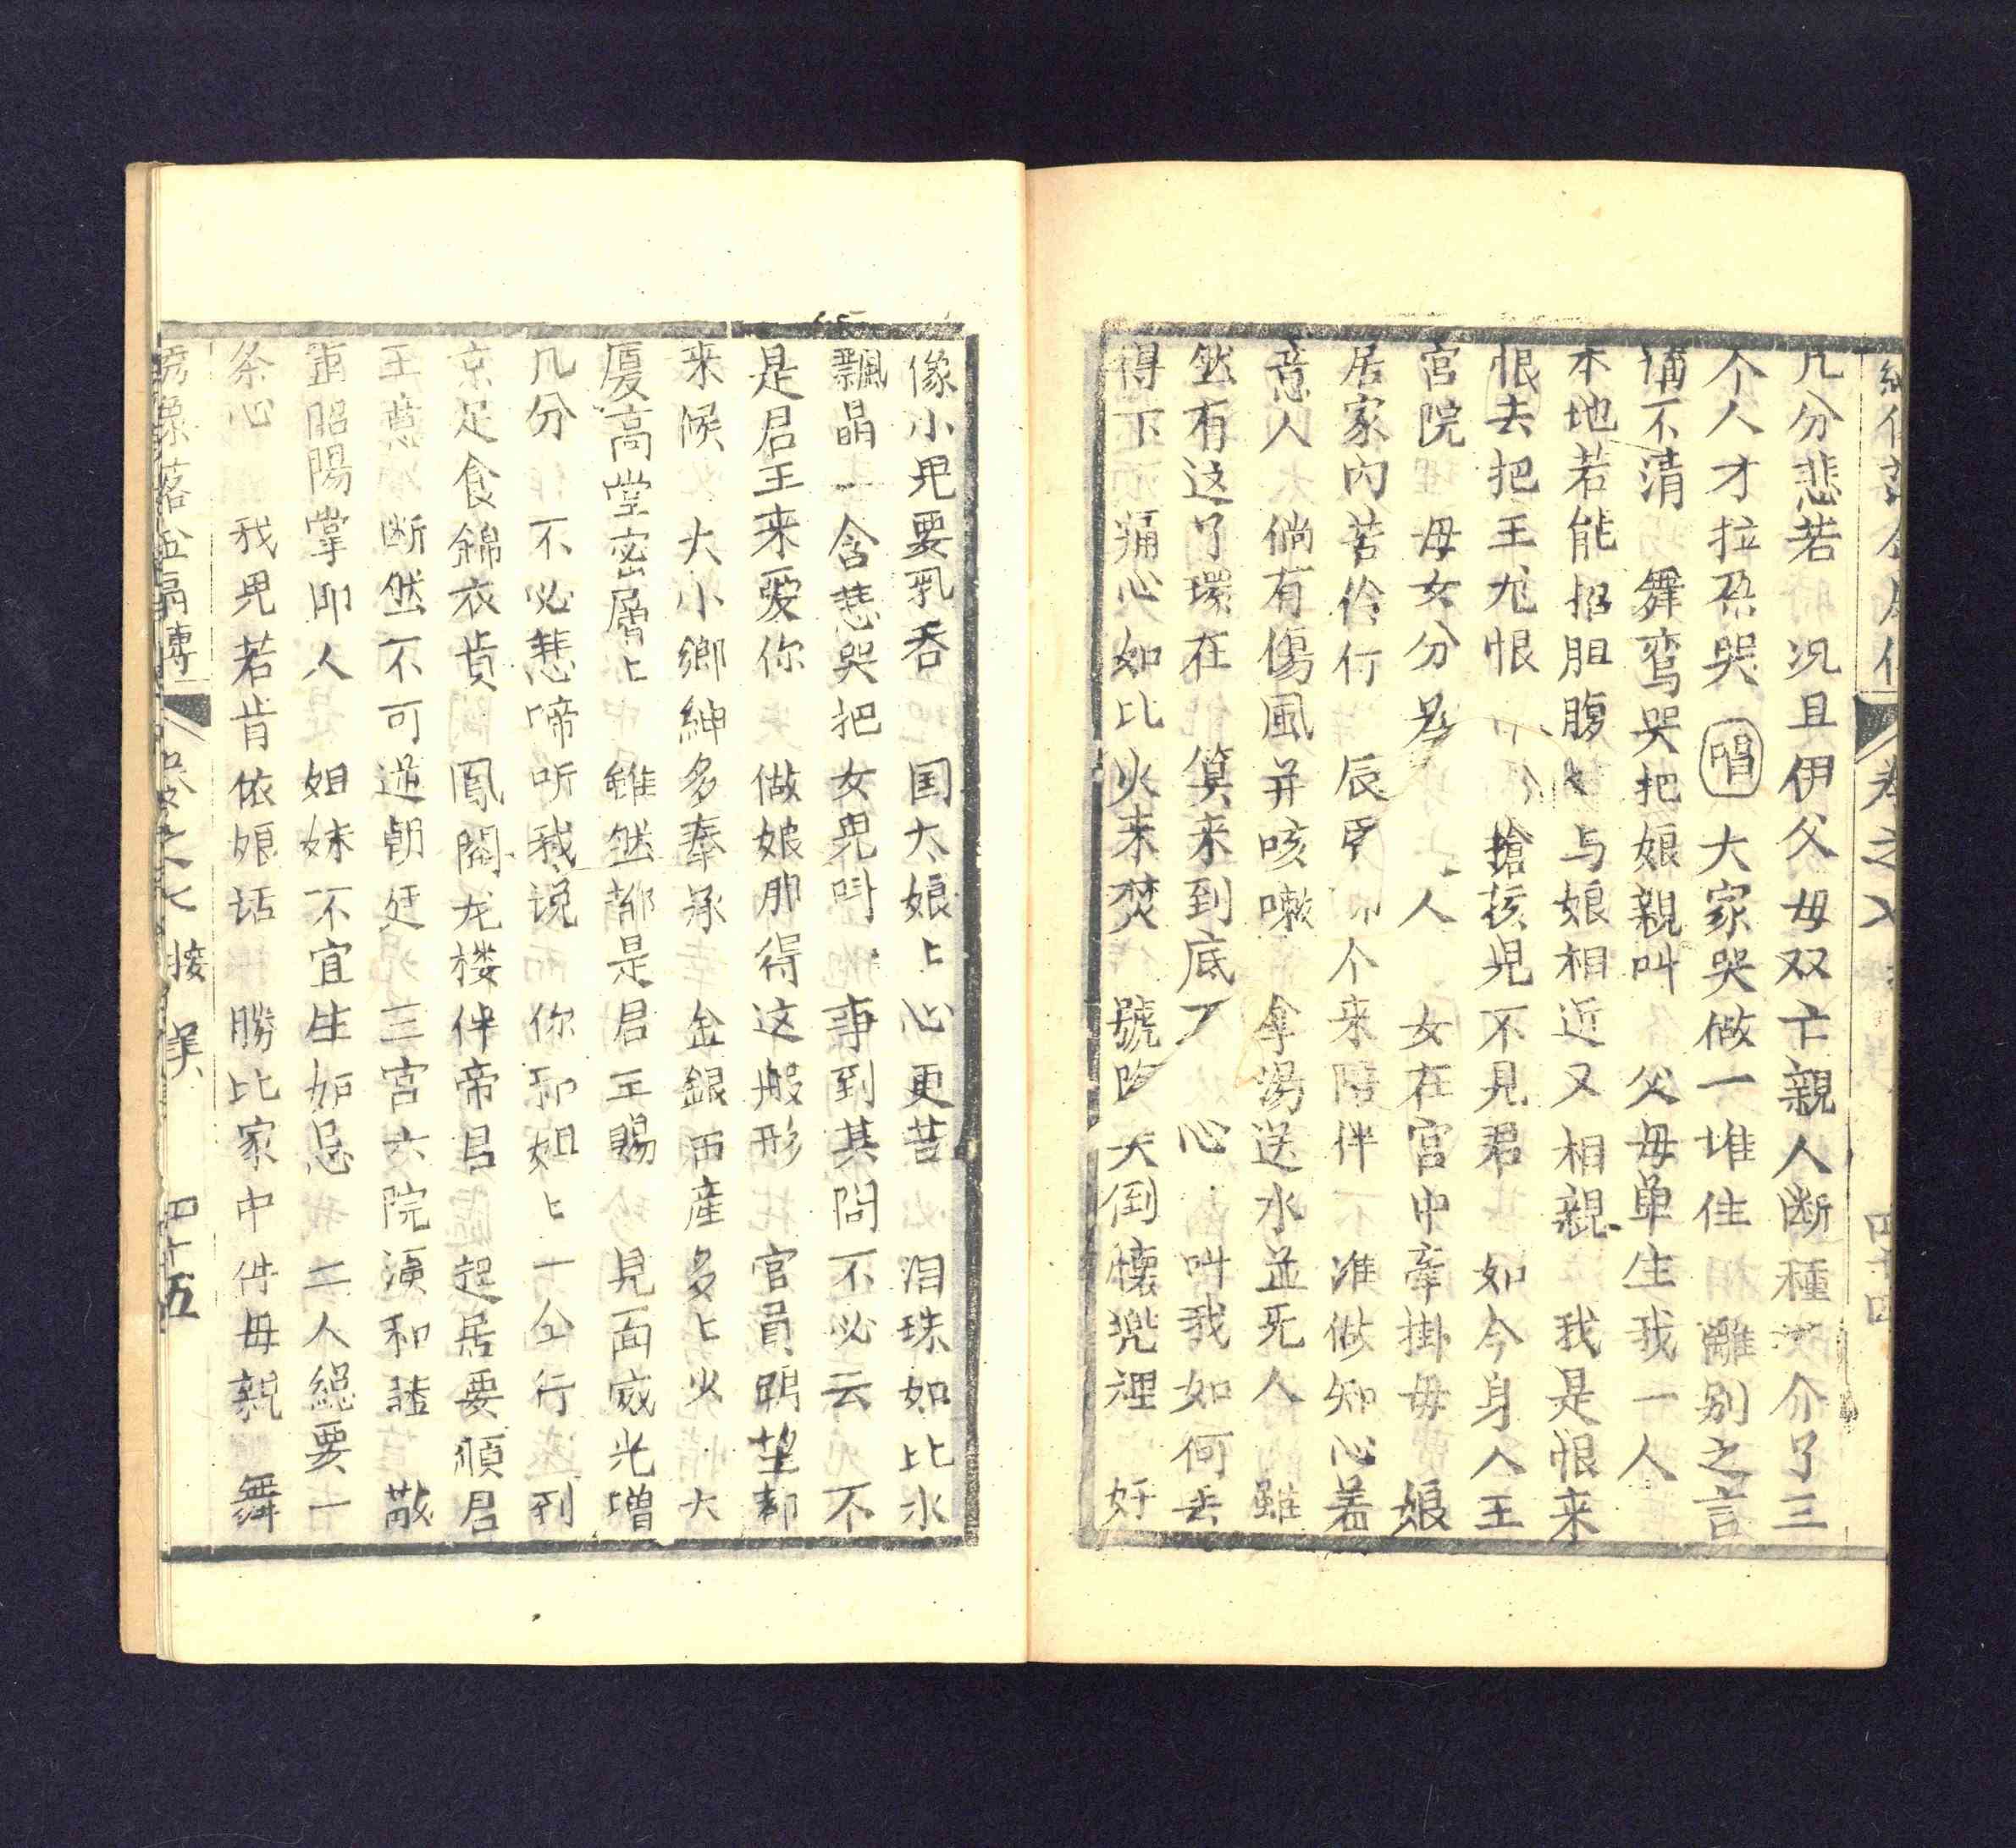 卷之
几分悲若　况且伊父母双亡親人断種　介了三
个人才拉䏬哭　唱　大家哭做一堆住　離别之言
不清　舞鸾哭把娘親叫　父母单生我一人
本地若能招胆腹　与娘相近又相親　我是恨来
恨去把王尤恨　搶孩児不見君　如今身入王
宮院　母女分　人　女在宮中牽掛母　娘
居家內苦伶行　辰昏　个来陪伴　准做知心着
意人　倘有傷風并咳嗽　拿湯送水並死人　雖
然有这了環在　算来到底　心　叫我如何去
得下　痛心如比火来焚　號　大倒懷兜裡　好
像小児要乳吞　国太娘上心更苦　泪珠如比水
飄晶　含悲哭把女児叫　事到其間不必云　不
是君王来愛你　做娘那得这般形　官員眀望都
来候　大小鄉紳多奉承　金銀田產多上火　大
厦高堂宻層上　雖然都是君王賜　見面威光增
几分　不必悲啼听我说　你和姐上一仝行　到
京足食錦衣貴　鳳閣龙楼伴帝君　起居要順君
王意　断然不可逆朝廷　三宮六院須和諧　敬
重昭陽掌印人　姐妹不宜生妬忌　二人總要一
条心　我児若肯依娘话　勝比家中伴母親　舞
繡像落金扇傳　卷之七　接　美　四十五